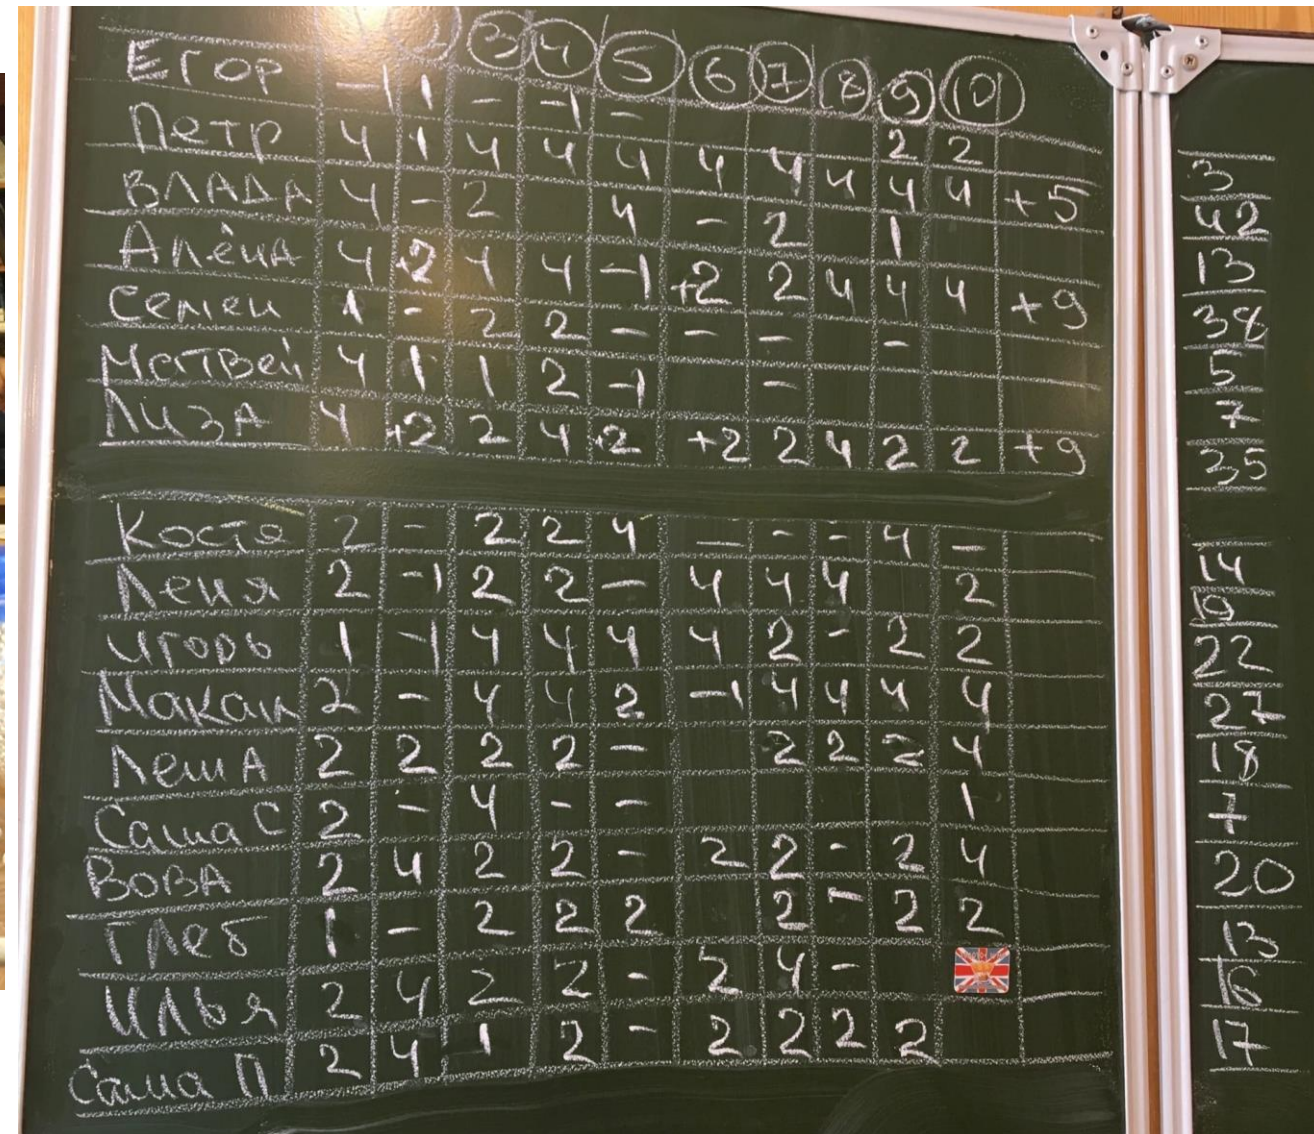 2 3 4 5 6 7 8 9 10
ЕГОР -1 1 - -1 - 2 2 3
Петр 4 1 4 4 4 4 4 4 4 4 +5 42
ВЛАДА 4 - 2 4 - 2 1 13
Алёна 4 +2 4 4 -1 +2 2 4 4 4 +9 38
Семен 1 - 2 2 - - - - 5
Матвей 4 1 1 2 -1 - 7
ЛИЗА 4 +2 2 4 +2 +2 2 4 2 2 +9 35
Костя 2 - 2 2 4 - - - 4 - 14
Леня 2 -1 2 2 - 4 4 4 2 19
Игорь 1 -1 4 4 4 4 2 - 2 2 22
2 - 4 4 2 -1 4 4 4 4 27
ЛешА 2 2 2 2 - 2 2 2 4 18
Саша С 2 - 4 - - 1 7
ВОВА 2 4 2 2 - 2 2 - 2 4 20
ГЛеб 1 - 2 2 2 2 - 2 2 13
Илья 2 4 2 2 - 2 4 - 16
Саша П 2 4 1 2 - 2 2 2 2 17